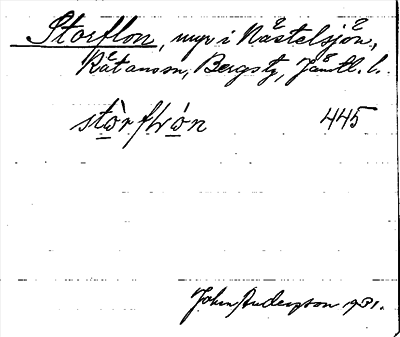 Storflon, myr i Nästelsjön,
Rätansn, Bergs tg, Jämtl. l.
stòrflón 445
John Anderzson 1931.